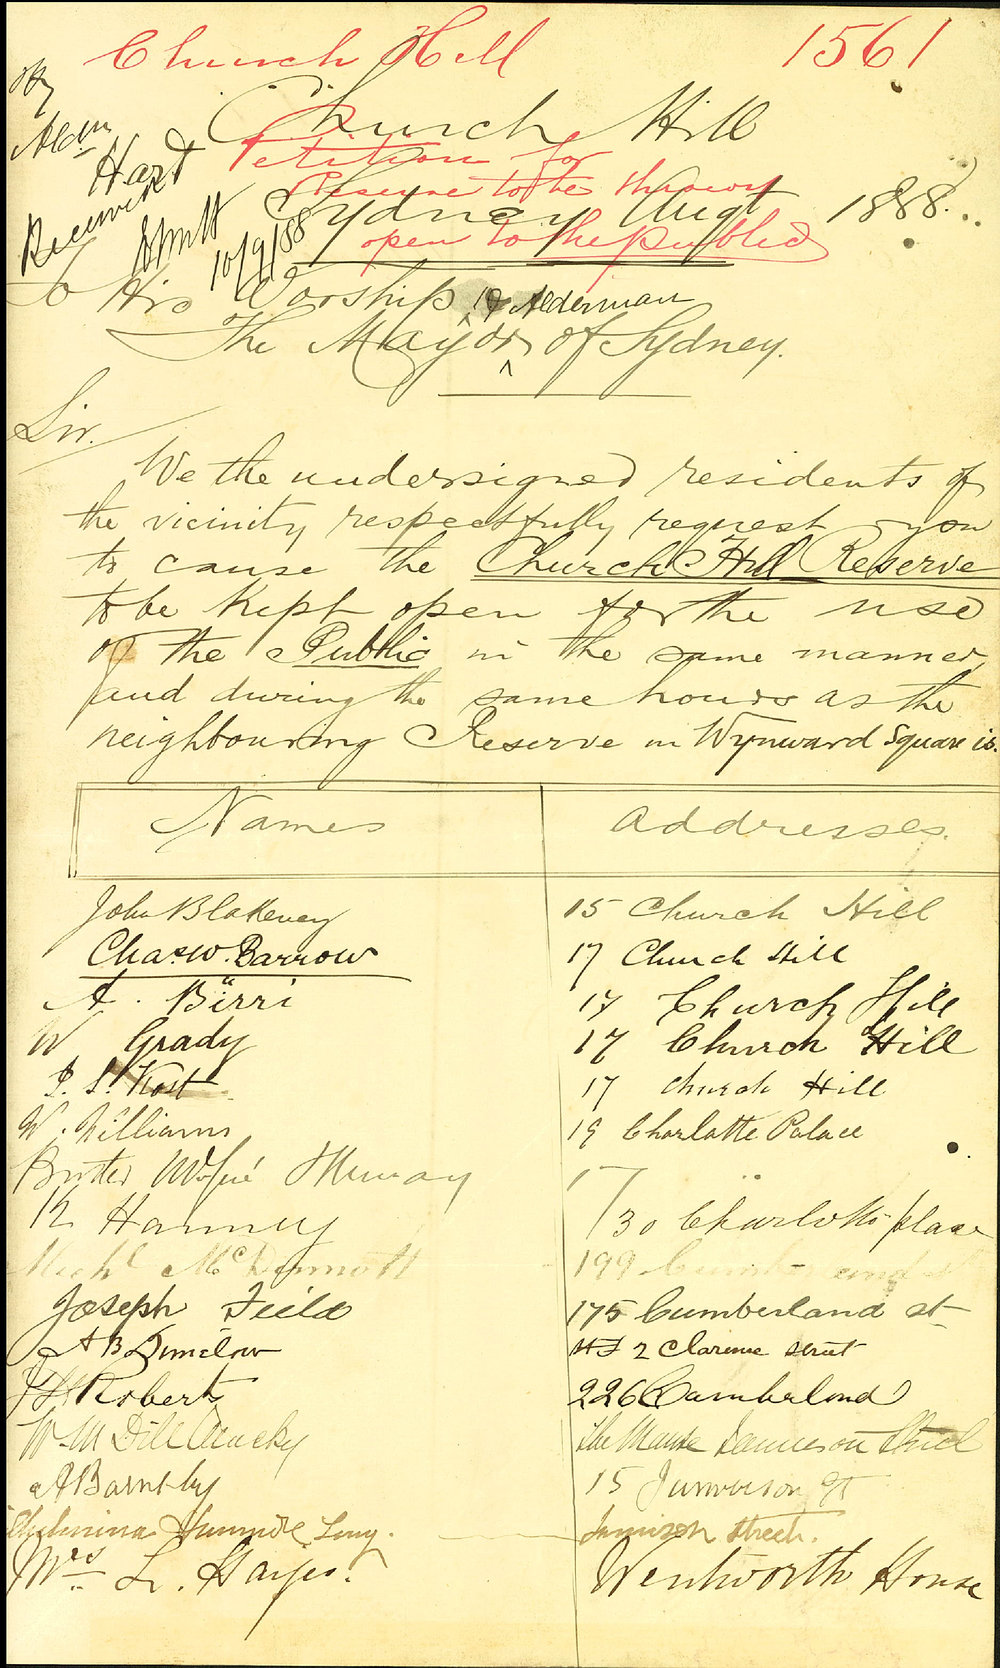 Church Hill 1561
By
Aldn
Hart
Church Hill
Petition for
Reserve to be thrown
open to the public
Sydney Augt 1888.
10/9/88
To His Worship & Alderman
The Mayor of Sydney.
Sir.
We the undersigned residents of
the vicinity respectfully request you
to cause the Church Hill Reserve
to be kept open for the use
of the Public in the same manner
and during the same hours as the
neighbouring Reserve in Wynward Square is.
Names Addresses.
John Blakeney 15 Church Hill
Chas W. Barrow 17 Church Hill
A. Birri 17 Church Hill
W Grady 17 Church Hill
Kost 17 Church Hill
W. Williams 19 Charlotte Palace
Murray 17 "
30 Charlotte place
Michl McDermott 199 Cumberland st
Joseph Field 175 Cumberland st
A B Dunelow 2 Clarence street
Robert 226 Cumberland
W M Dill Macky The Manse Jamieson Street
A Barnby 15 Jamieson St
Jamison Street.
Mrs L. Hayes. Wentworth House